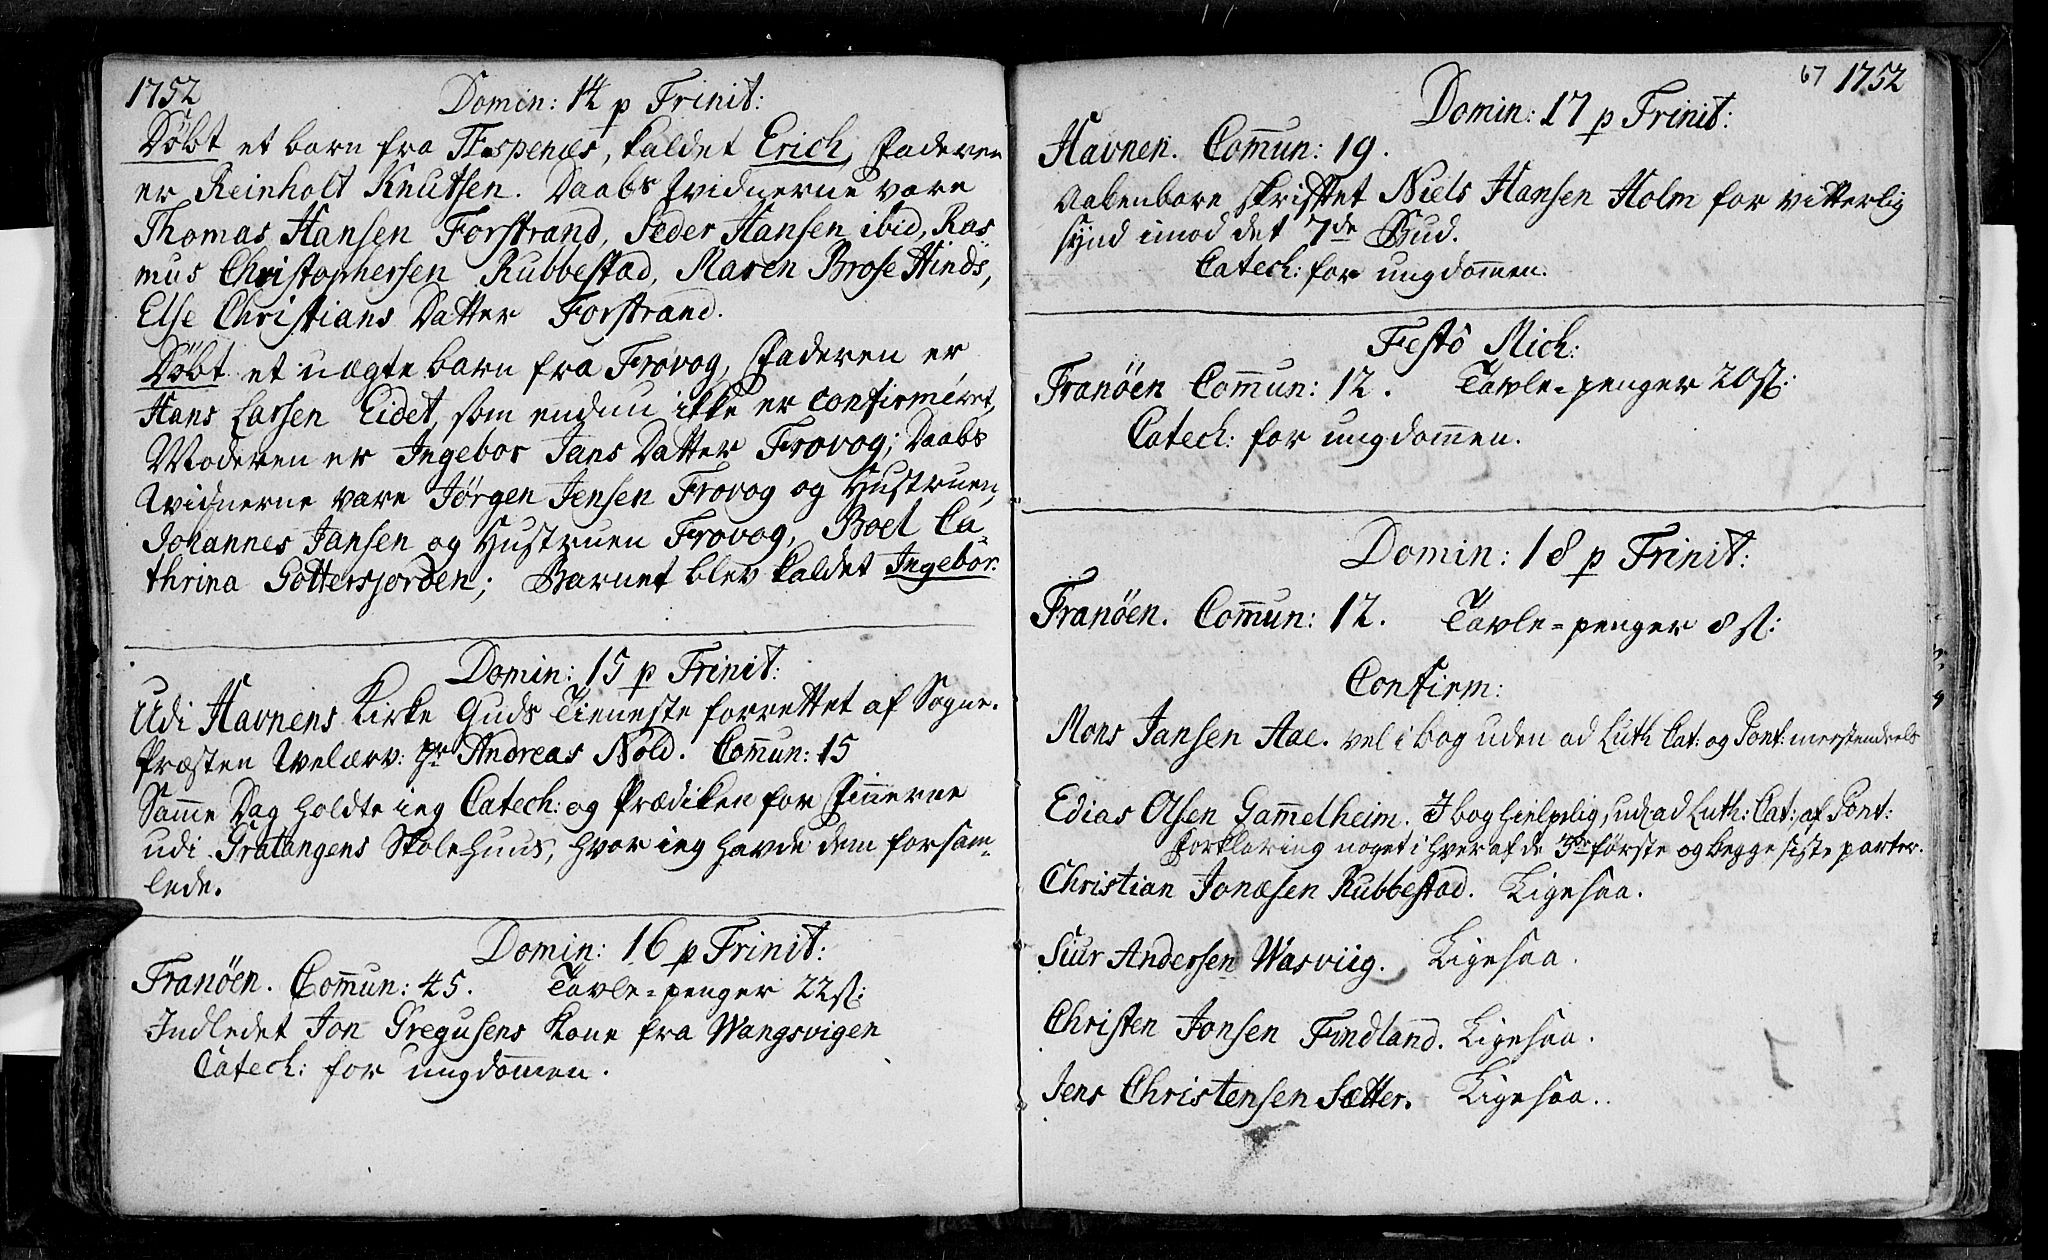 1752
Domin: 14 p Trinit:
Döbt et barn fra Espenes, kaldet Erich, Faderen
er Reinholt Knutsen. Daabs Vidnerne vare
Thomas Hansen Forstrand, Peder Hansen ibid, Ras
mus Christophersen Rubbestad, Maren Brose Hinds,
Else Christians Datter Forstrand.
Döbt et uægte barn fra Frovog, Faderen er
Hans Larsen Eidet, som endnu ikke er confirmeret,
Moderen er Ingebor Jans Datter Frovog; Daabs
Vidnerne vare Jörgen Jensen Frovog og Hustruen,
Johannes Jansen og Hustruen Frovog, Boel Ca=
thrina Gottersjorden; Barnet blev kaldet Ingebor.
Domin: 15 p Trinit:
Udi Havnens Kirke Guds Tieneste forrettet af Sogne-
Præsten Welærv: Hr Andreas Nold. Com̄un: 15
Sam̄e Dag holdte ieg Catech: og Prædiken for Fin̄erne
udi Gratangens Skolehuus, hvor ieg havde dem forsam=
lede.
Domin: 16 p Trinit:
Tranöen. Com̄un: 45. Tavle=penger 22 sl:
Indledet Jon Gregusens Kone fra Wangsvigen
Catech: for ungdom̄en.
67 1752
Domin: 17 p Trinit:
Havnen. Com̄un: 19.
Aabenbare skriftet Niels Hansen Holm for vitterlig
synd imod det 7de Bud.
Catech: for ungdom̄en.
Festô Mich:
Tranöen Com̄un: 12. Tavle=penger 20 sl:
Catech: for ungdom̄en.
Domin: 18 p Trinit:
Tranöen. Com̄un: 12. Tavle=penger 8 sl:
Confirm:
Mons Jansen Aae. vel i bog uden ad Luth Cat: og Pont: merstendeels
Edias Olsen Gam̄elheim. I bog hielpelig, ud ad Luth: Cat; af Pont:
Forklaring noget i hver af de 3de förste og begge siste parter.
Christian Jonæsen Rubbestad. Ligesaa.
Siur Andersen Wasviig. Ligesaa.
Christen Jonsen Findland. Ligesaa.
Jens Christensen Sætter. Ligesaa.